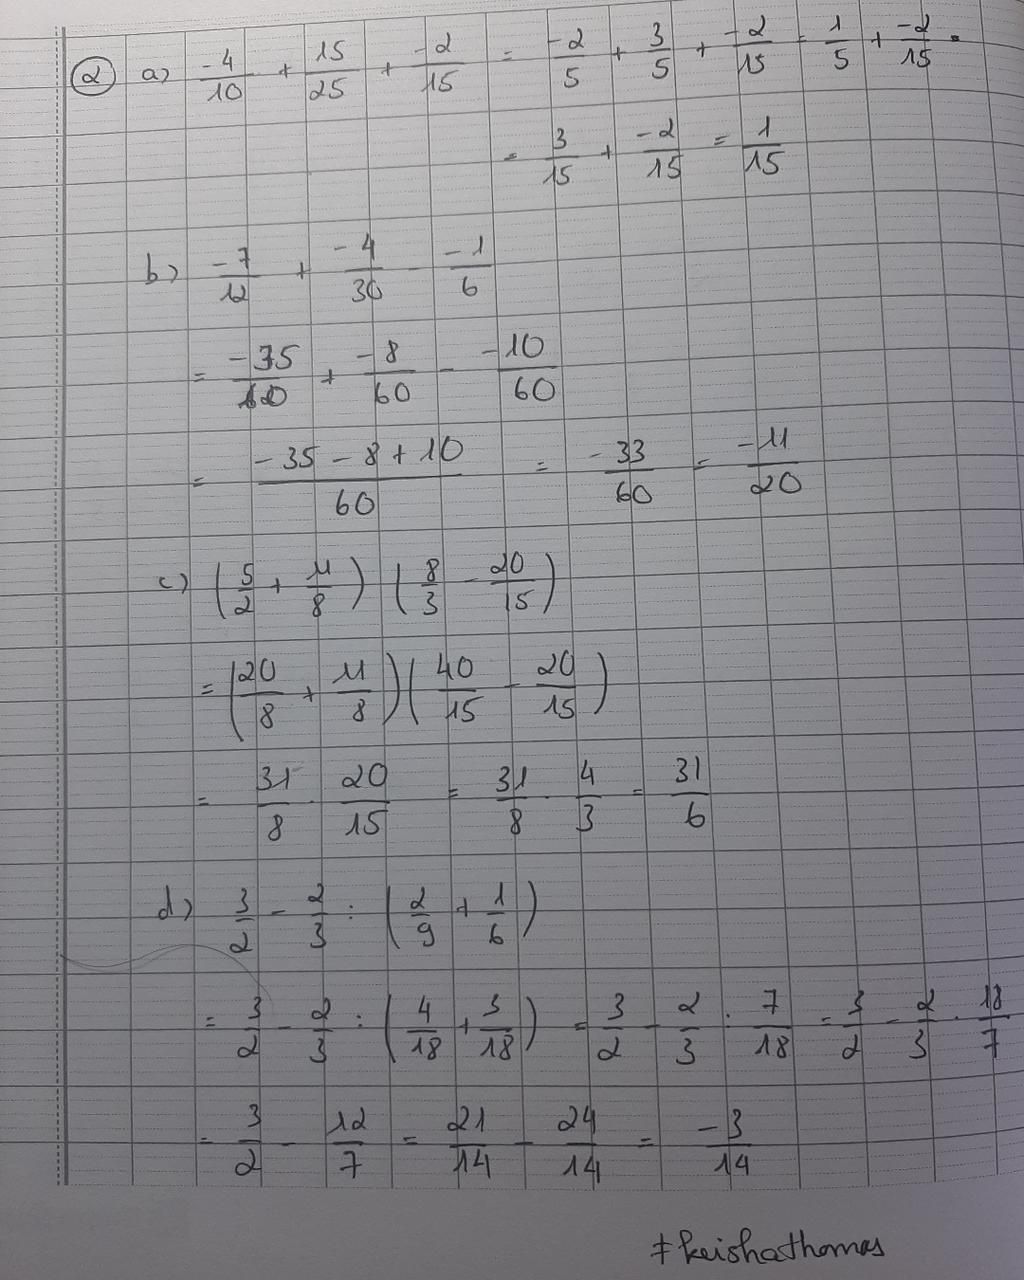 ② a) -4/10 + 15/25 + -2/15 = -2/5 + 3/5 + -2/15 = 1/5 + -2/15 =
= 3/15 + -2/15 = 1/15
b) -7/12 + -4/30 - -1/6
= -35/60 + -8/60 - -10/60
= (-35 - 8 + 10)/60 = -33/60 = -11/20
c) (5/2 + 11/8) (8/3 - 20/15)
= (20/8 + 11/8) (40/15 - 20/15)
= 31/8 . 20/15 = 31/8 . 4/3 = 31/6
d) 3/2 - 2/3 : (2/9 + 1/6)
= 3/2 - 2/3 : (4/18 + 3/18) = 3/2 - 2/3 : 7/18 = 3/2 - 2/3 . 18/7
= 3/2 - 12/7 = 21/14 - 24/14 = -3/14
#keishathomas